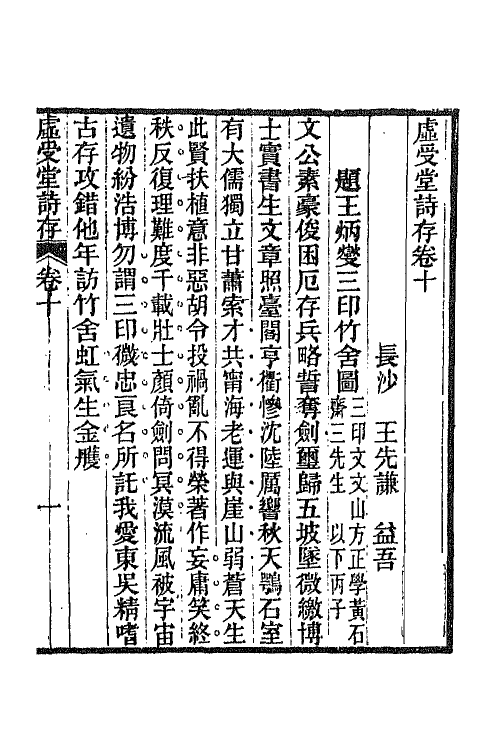 虛受堂詩存卷十
長沙　王先謙　益吾
題王炳燮三印竹舍圖三印文文山方正學黃石
齋三先生　以下丙子
文公素豪俊困厄存兵略誓奪劍璽歸五坡墜微繳博
士實書生文章照臺閣亨衢慘沈陸厲響秋天鶚石室
有大儒獨立甘蕭索才共甯海老運與崖山弱蒼天生
此賢扶植意非惡胡令投禍亂不得榮著作妄庸笑終
秩反復理難度千載壯士顏倚劍問冥漠流風被宇宙
遺物紛浩博勿謂三印微忠良名所託我愛東吳精嗜
古存攻錯他年訪竹舍虹氣生金雘
虛受堂詩存　卷十　一